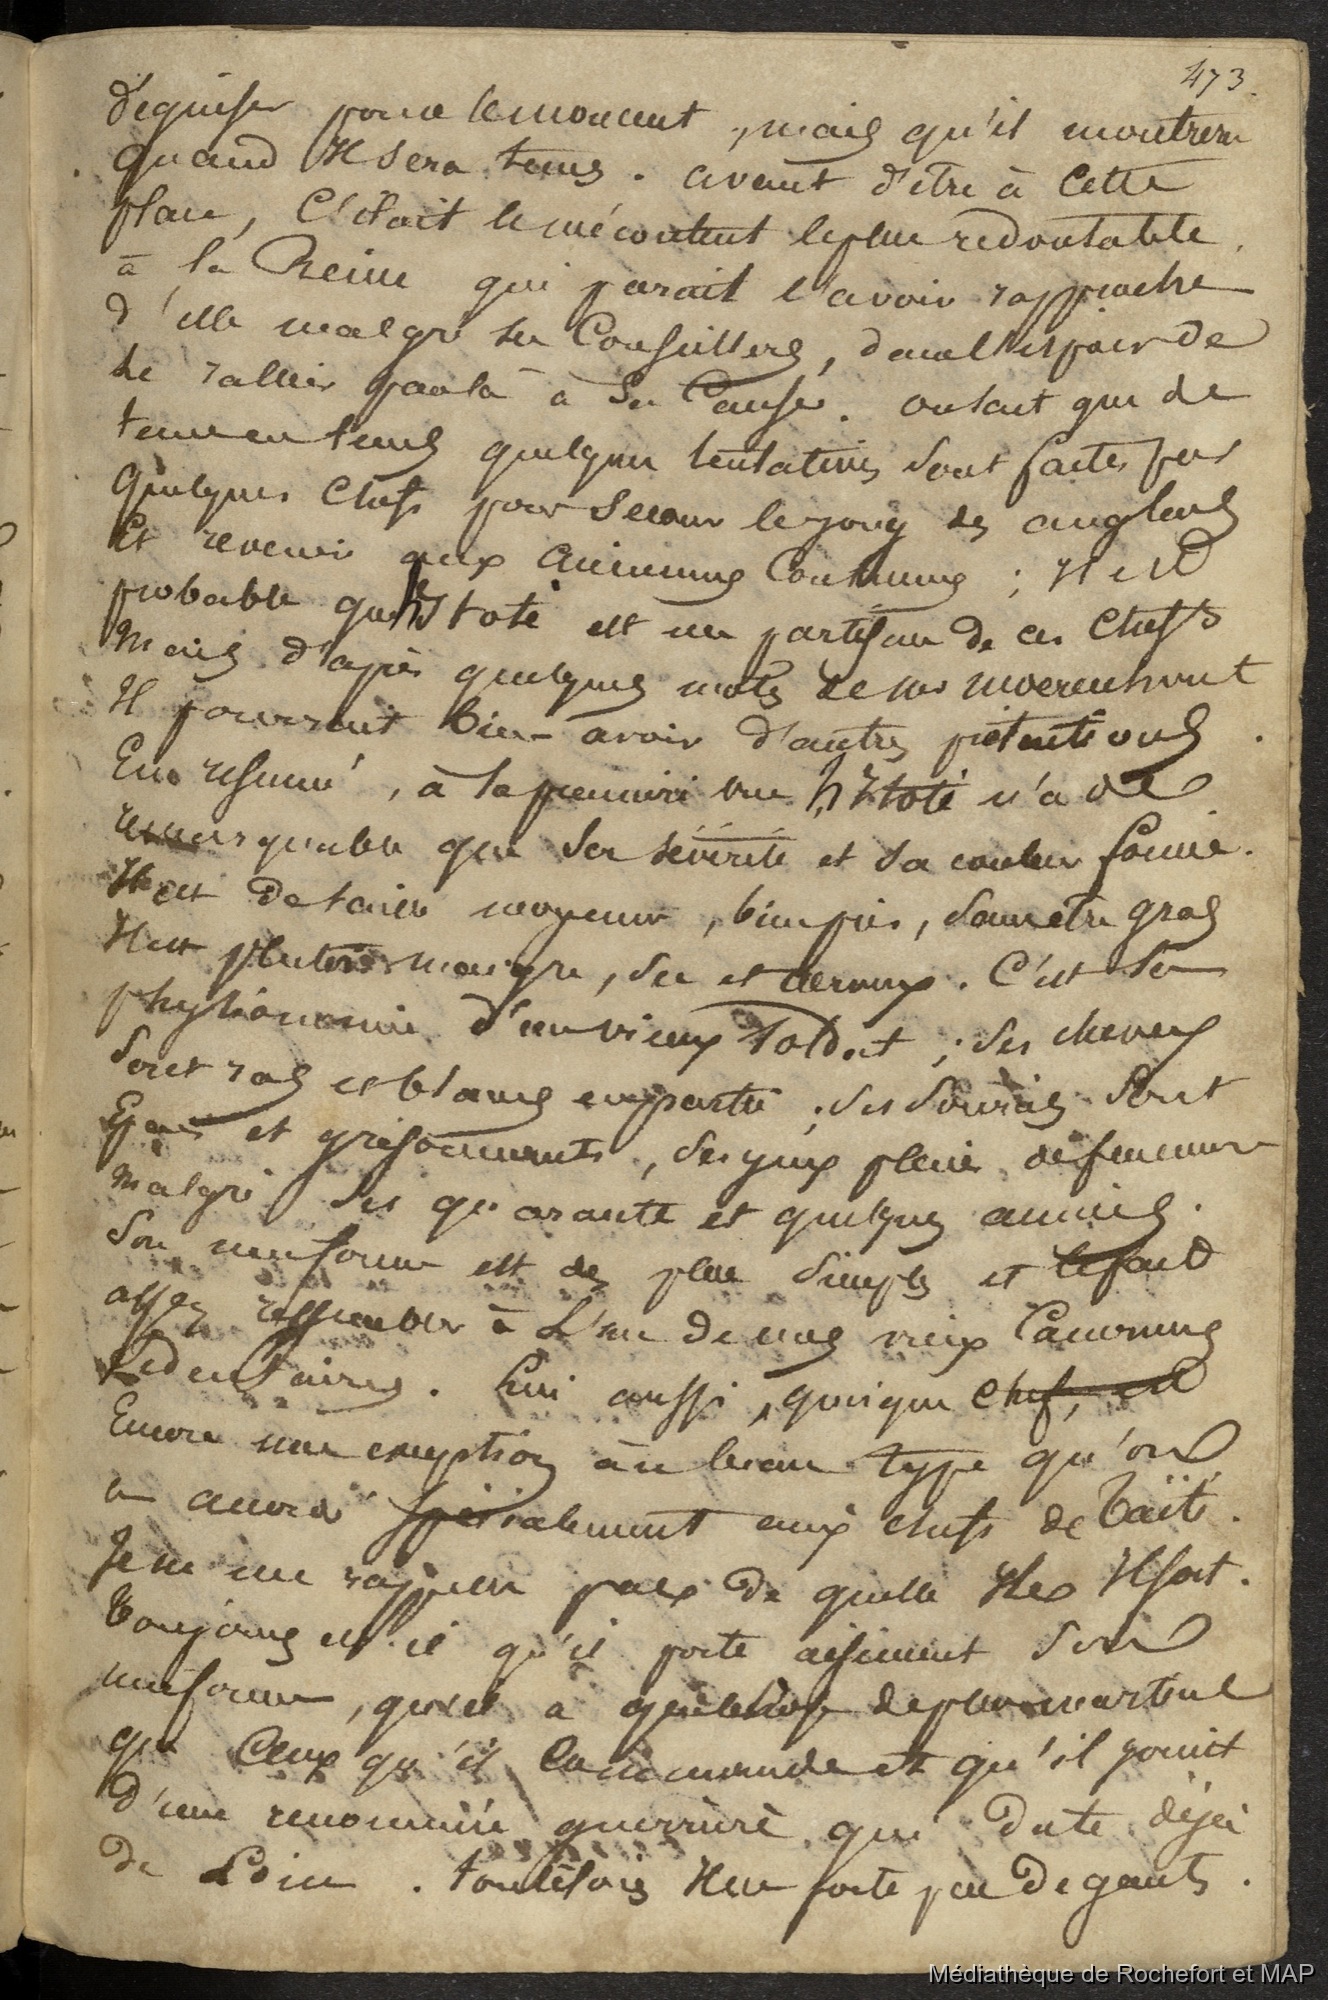 473.
déguiser pour le moment, mais qu'il montrera
quand il sera tems. avant d'être à cette
place, c'était le mécontent le plus redoutable
à la Reine qui parait l'avoir rapproché
d'elle malgré ses Conseillers, dans l'espoir de
le rallier par là à sa Cause. on sait que de
tems en tems quelques tentatives sont faites par
quelques Chefs pour secouer le joug des anglais
et revenir aux anciennes Coutumes ; il est
probable que hitoté est un partisan de ces Chefs
mais d'après quelques mots de
il pourrait bien avoir d'autres prétentions.
En résumé, à la première vue hitoté n'a de
remarquable que sa sévérité et sa couleur foncée.
Il est de taille moyenne, bien pris, sans être gras
Il est plutôt maigre, sec et nerveux. C'est la
physionomie d'un vieux soldat ; ses cheveux
sont ras et blancs en partie ; ses sourcils sont
épais et grisonnants, ses yeux pleins de
malgré ses quarante et quelques années.
Son uniforme est des plus simples et le fait
assez ressembler à l'un de nos vieux Canonniers
Sédentaires. Lui aussi, quoique chef, est
Encore une exception au beau type qu'on
a accordé spécialement aux chefs de Taïti.
Je ne me rappelle pas de quelle Iles il sort.
Toujours est-il qu'il porte aisément son
uniforme, qu'il a quelque chose de plus martial
que Ceux qu'il Commande et qu'il jouit
d'une renommée guerrière qui date déjà
de Loin. toutefois il ne porte pas de gants.
Médiathèque de Rochefort et MAP